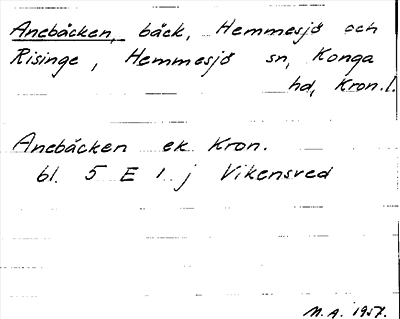 Anebäcken, bäck, Hemmesjö och
Risinge, Hemmesjö sn, Konga
hd, Kron.l.
Anebäcken ek. Kron.
bl. 5 E 1 j Vikensved
M.A. 1957.